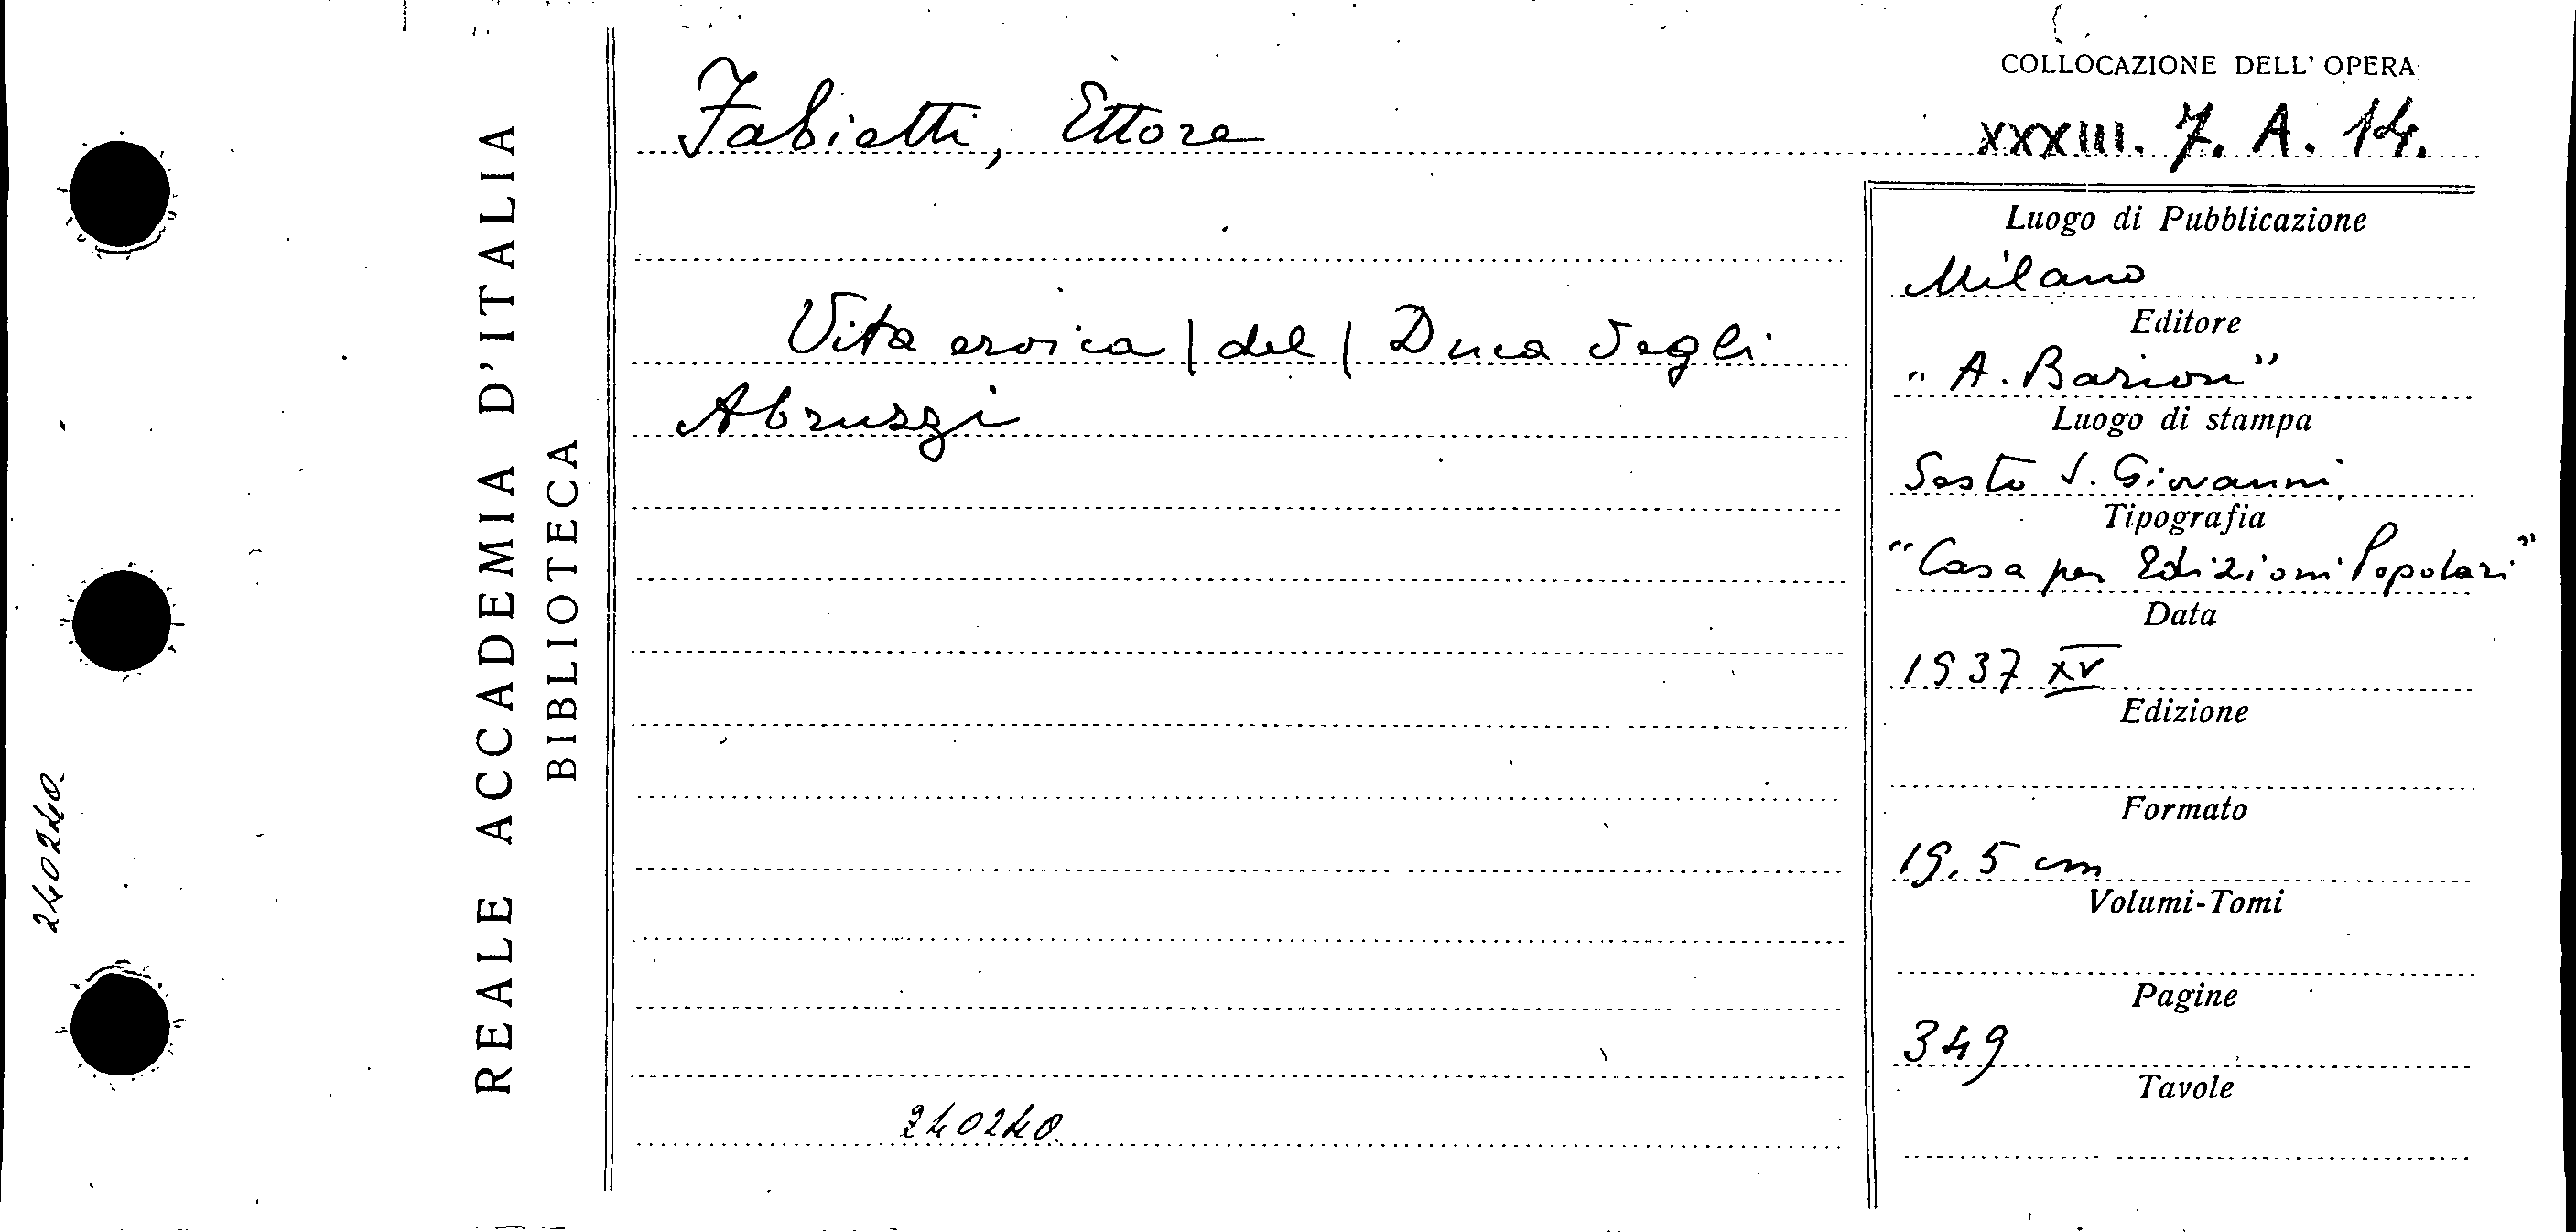 REALE ACCADEMIA D'ITALIA
BIBLIOTECA
240240
Fabietti, Ettore
Vita eroica | del | Duca degli
Abruzzi
240240
COLLOCAZIONE DELL' OPERA
XXXIII. 7. A. 14.
Luogo di Pubblicazione
Milano
Editore
"A. Barion"
Luogo di stampa
Sesto S. Giovanni
Tipografia
"Casa per Edizioni Popolari"
Data
1937 XV
Edizione
Formato
19,5 cm
Volumi-Tomi
Pagine
349
Tavole